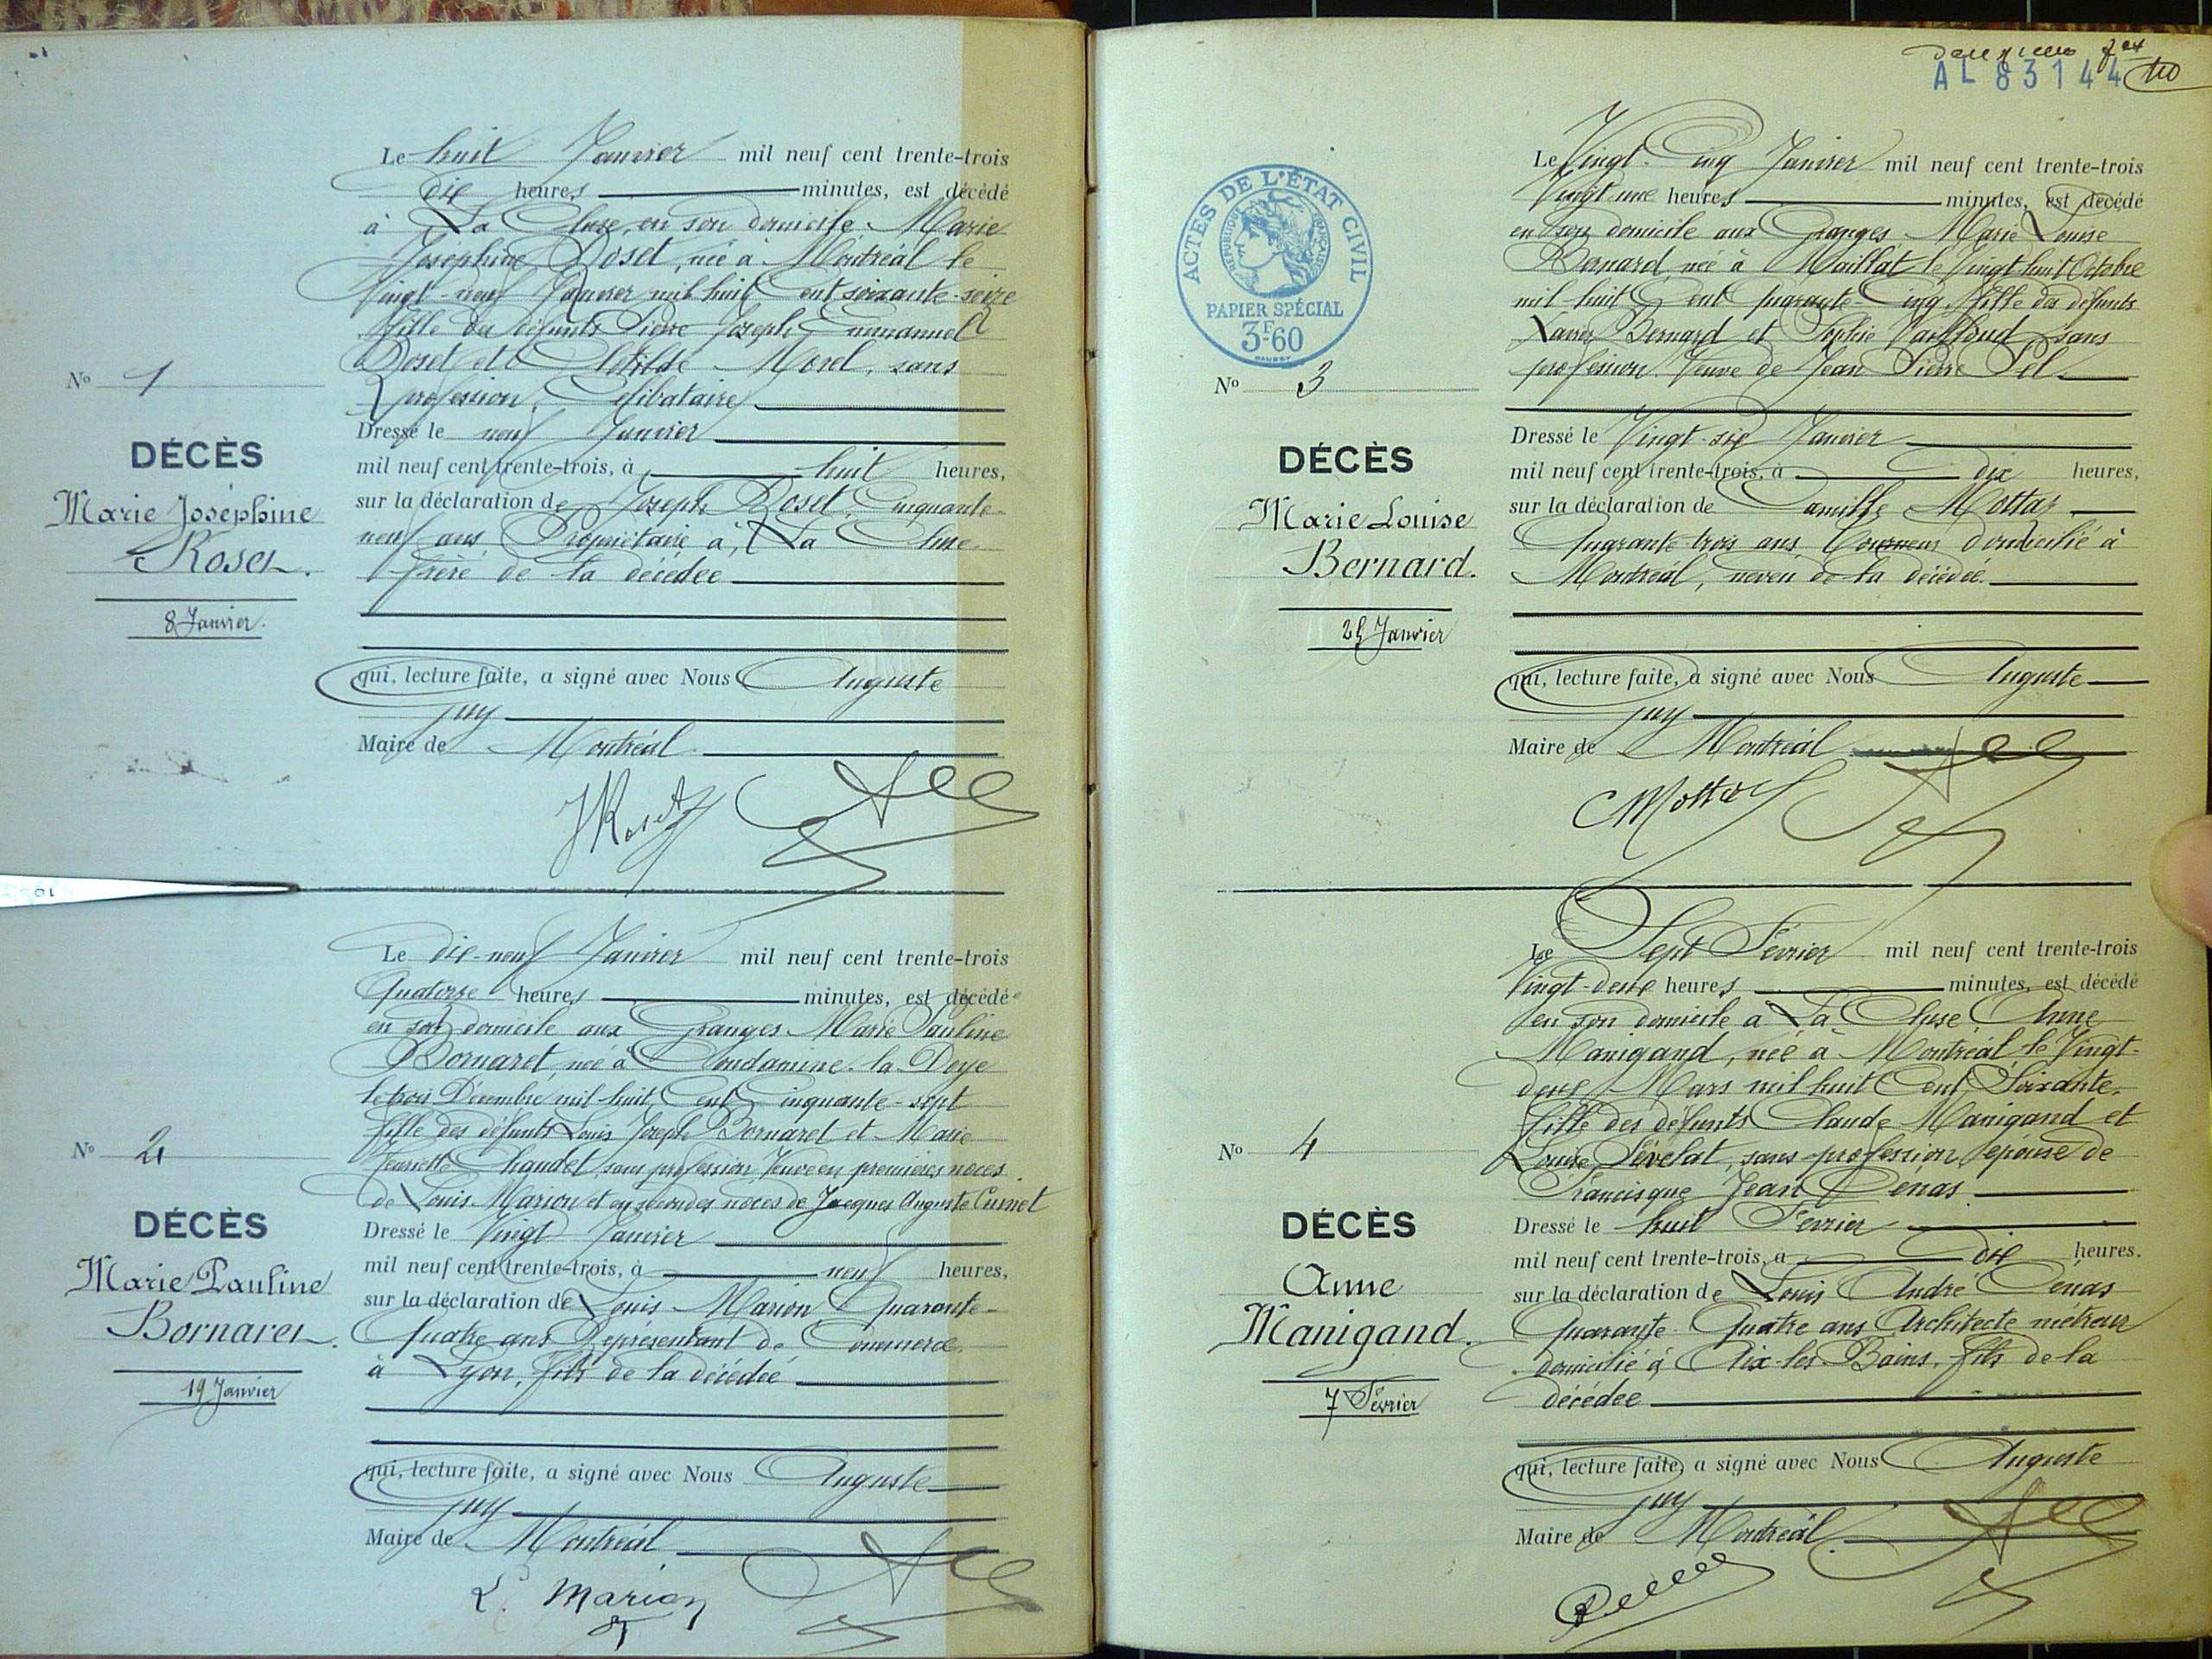 Le huit Janvier mil neuf cent trente-trois
dix heures minutes, est décédé
à La Cluse, en son domicile Marie
Joséphine Roset, née à Montréal le
Vingt-neuf Janvier mil huit Cent soixante-seize
fille des défunts Pierre Joseph Emmanuel
Roset et Clotilde Morel, sans
profession, Célibataire
Dressé le neuf Janvier
mil neuf cent trente-trois, à huit heures,
sur la déclaration de Joseph Roset, Cinquante-
neuf ans Propriétaire à La Cluse
frère de la décédée
qui, lecture faite, a signé avec Nous Auguste
Juy
Maire de Montréal
JRoset
N° 1
DÉCÈS
Marie Joséphine
Roset.
8 Janvier.
Le dix-neuf Janvier mil neuf cent trente-trois
Quatorze heures minutes, est décédée
en son domicile aux Granges Marie Pauline
Bornaret, née à Condamine-la-Doye
le trois Décembre mil huit Cent Cinquante-sept
fille des défunts Louis Joseph Bornaret et Marie
Henriette Chaudet, sans profession Veuve en premières noces
de Louis Marion et en secondes noces de Jacques Auguste Cumet
Dressé le Vingt Janvier
mil neuf cent trente-trois, à neuf heures,
sur la déclaration de Louis Marion Quarante-
Quatre ans Représentant de Commerce
à Lyon, fils de la décédée
qui, lecture faite, a signé avec Nous Auguste
Juy
Maire de Montréal
L. Marion
N° 2
DÉCÈS
Marie Pauline
Bornaret.
19 Janvier
AL 83144
ACTES DE L'ÉTAT CIVIL
RÉPUBLIQUE FRANÇAISE
PAPIER SPÉCIAL
3F60
Le Vingt-Cinq Janvier mil neuf cent trente-trois
Vingt une heures minutes, est décédé
en son domicile aux Granges Marie Louise
Bernard, née à Maillat le Vingt huit Octobre
mil-huit Cent quarante-Cinq fille des défunts
Xavier Bernard et Sophie sans
profession Veuve de Jean Pierre Pel
Dressé le Vingt-six Janvier
mil neuf cent trente-trois, à dix heures,
sur la déclaration de Camille Mottaz
Quarante-trois ans, Tourneur domicilié à
Montréal, neveu de la décédée
qui, lecture faite, a signé avec Nous Auguste
Juy
Maire de Montréal
CMottaz
N° 3
DÉCÈS
Marie Louise
Bernard.
25 Janvier
Le Sept Février mil neuf cent trente-trois
Vingt-deux heures minutes, est décédé
en son domicile à La Cluse Anne
Manigand, née à Montréal le Vingt-
deux Mars mil huit Cent Soixante,
fille des défunts Claude Manigand et
Louise Pévelat, sans profession, épouse de
Francisque Jean Cenas
Dressé le huit Février
mil neuf cent trente-trois, à dix heures.
sur la déclaration de Louis André Cenas
Quarante-Quatre ans Architecte métreur
domicilié à Aix-les-Bains, fils de la
décédée
qui, lecture faite, a signé avec Nous Auguste
Juy
Maire de Montréal
N° 4
DÉCÈS
Anne
Manigand.
7 Février